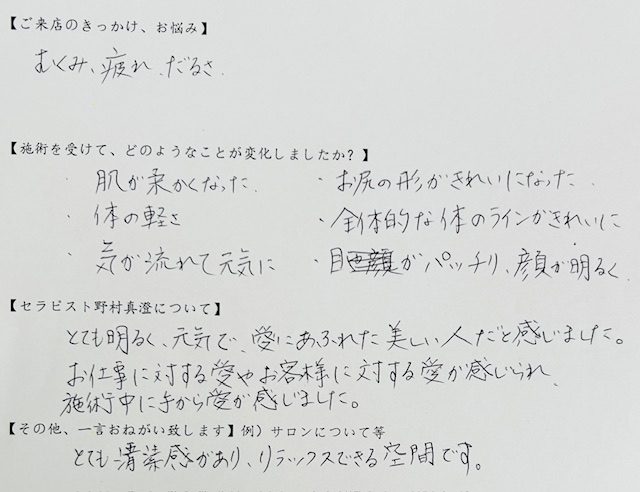 【ご来店のきっかけ、お悩み】
むくみ、疲れ、だるさ
【施術を受けて、どのようなことが変化しましたか？】
・肌が柔かくなった
・お尻の形がきれいになった
・体の軽さ
・全体的な体のラインがきれいに
・気が流れて元気に
・目がパッチリ、顔が明るく
【セラピスト野村真澄について】
とても明るく、元気で、愛にあふれた美しい人だと感じました。
お仕事に対する愛やお客様に対する愛が感じられ、
施術中に手から愛が感じました。
【その他、一言おねがい致します】例）サロンについて等
とても清潔感があり、リラックスできる空間です。